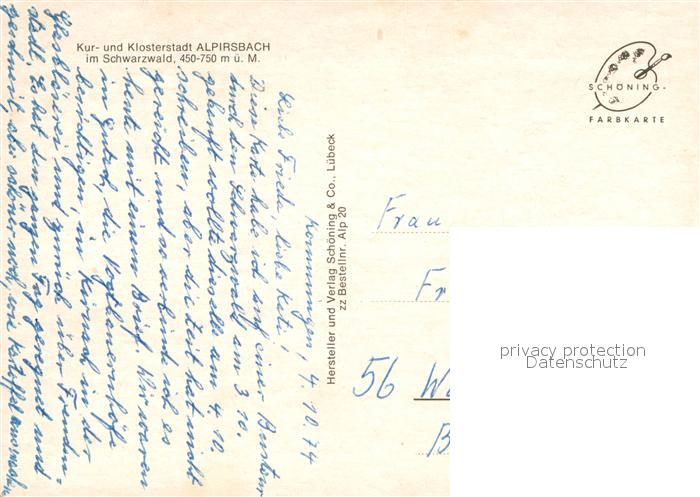 Kur- und Klosterstadt ALPIRSBACH
im Schwarzwald, 450-750 m ü. M.
SCHÖNING-
FARBKARTE
Hersteller und Verlag Schöning & Co., Lübeck
zz Bestellnr. Alp 20
4.10.74
Liebe Friedel, liebe Käte!
Diese Karte habe ich auf einer Bustour
durch den Schwarzwald am 3.10.
gekauft wollte dieselbe am 4.10
schreiben, aber die Zeit hat nicht
gereicht und so verbind ich es
heute mit einem Brief. Wir waren
in Gutach, die Vogtbauernhöfe
besichtigen, in Kürnach in der
Glasbläserei und zurück über Freuden=
stadt. Es hat den ganzen Tag geregnet und
Frau
Fr
56 W
B
privacy protection
Datenschutz